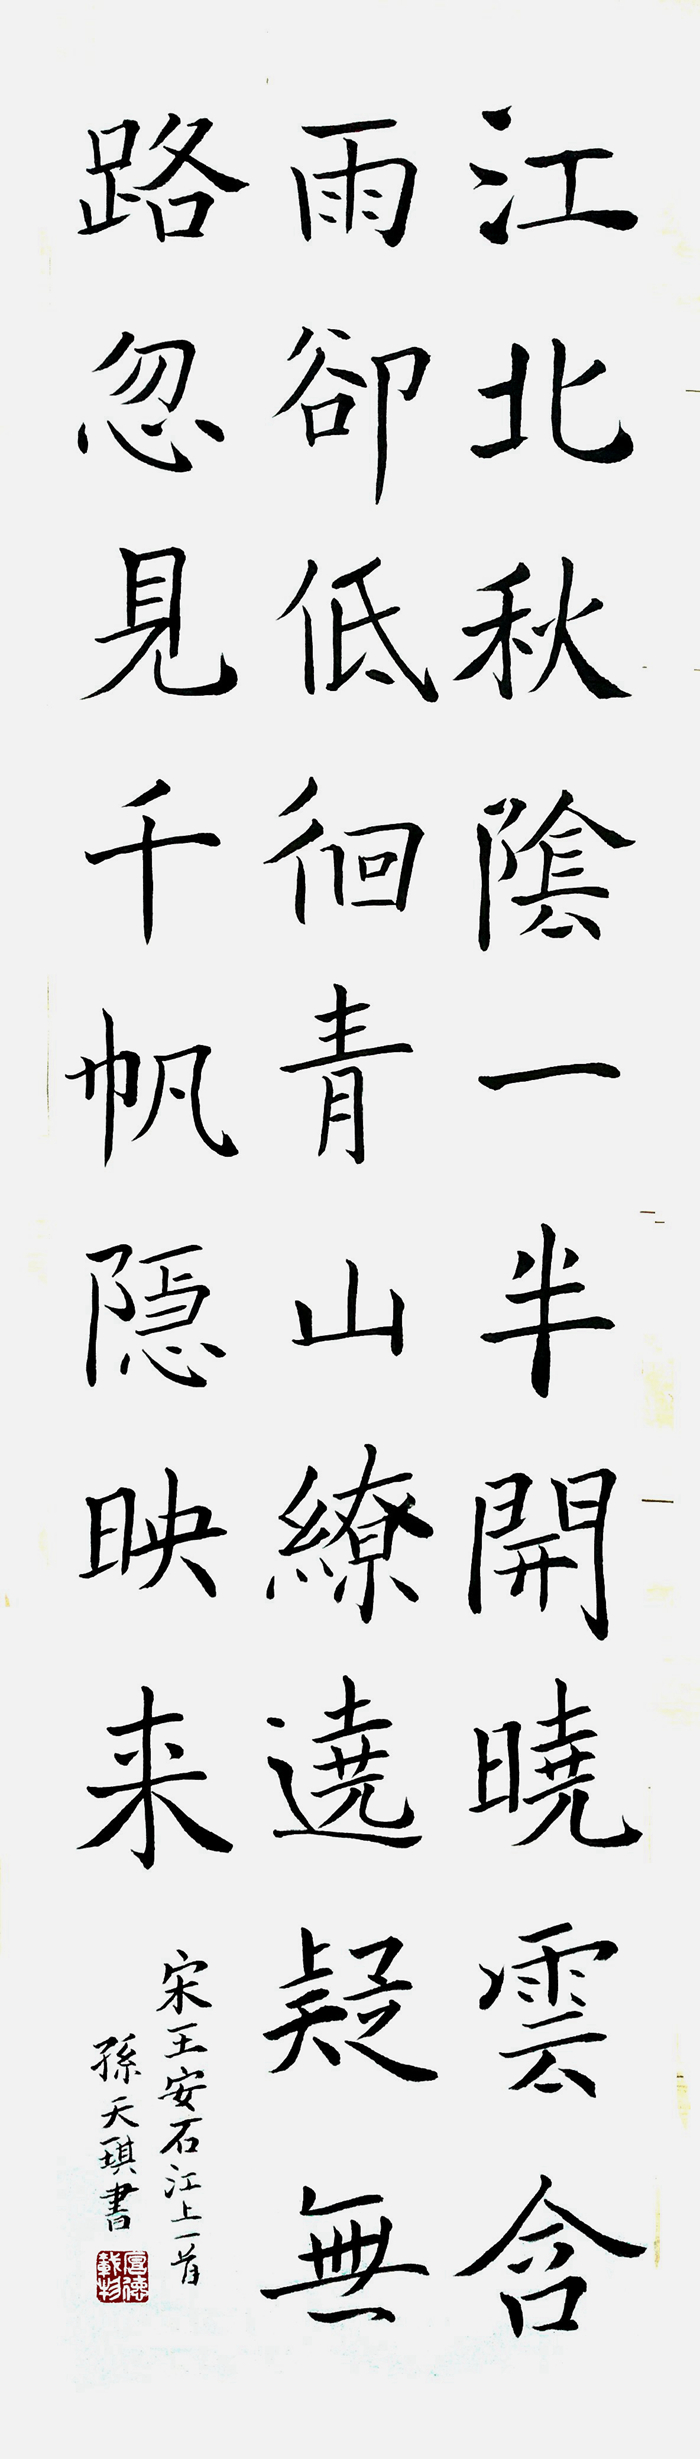 江北秋陰一半開曉雲含
雨卻低徊青山繚遶疑無
路忽見千帆隱映来
宋王安石江上一首
孫天琪書
厚德載物